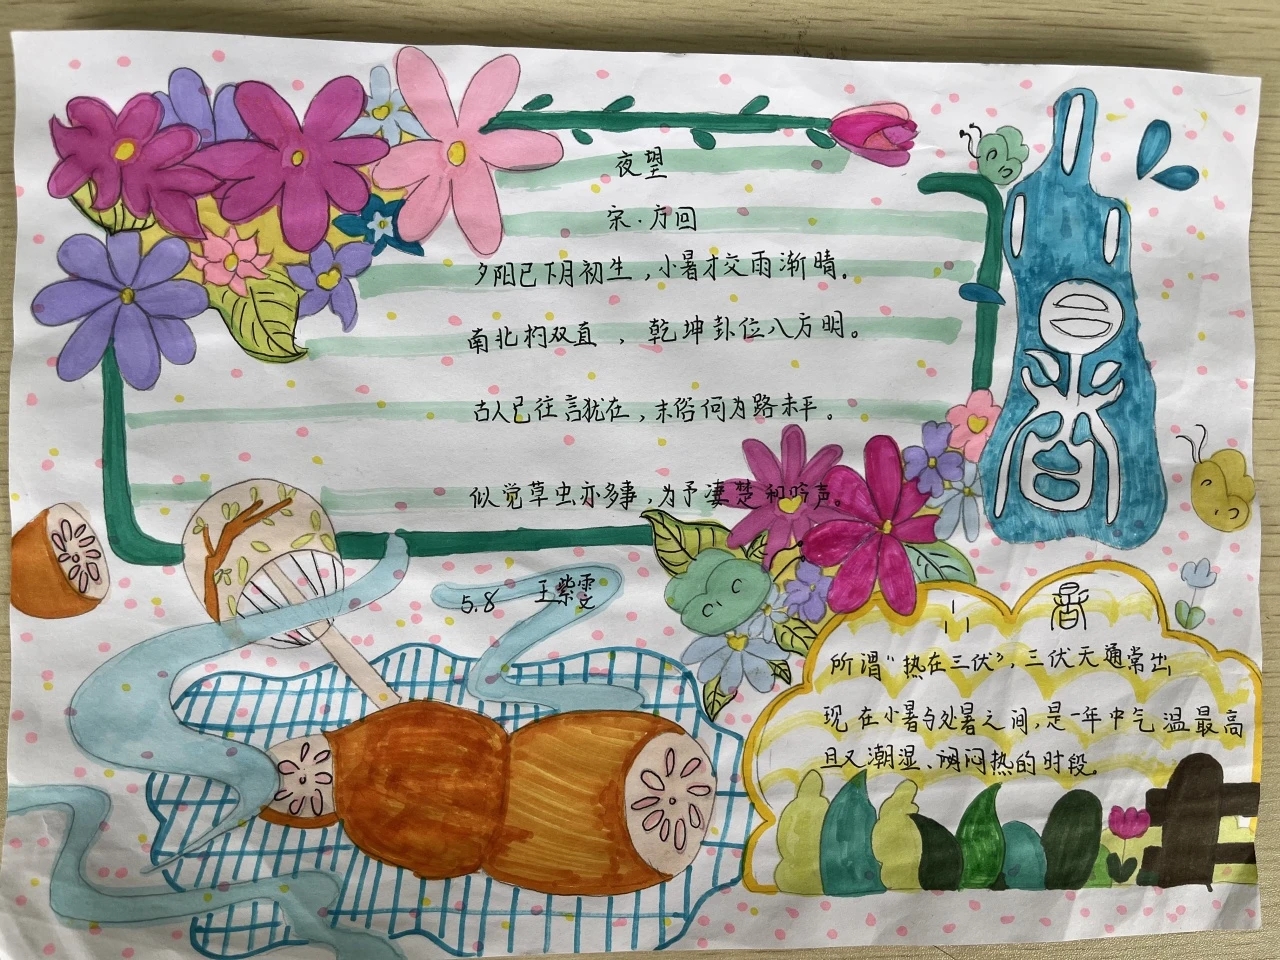 夜望
宋·方回
夕阳已下月初生，小暑才交雨渐晴。
南北杓双直，乾坤卦位八方明。
古人已往言犹在，末俗何为路未平。
似觉草虫亦多事，为予凄楚和吟声。
5.8 王紫雯
小暑
小暑
所谓“热在三伏”，三伏天通常出
现在小暑与处暑之间，是一年中气温最高
且又潮湿、闷热的时段。